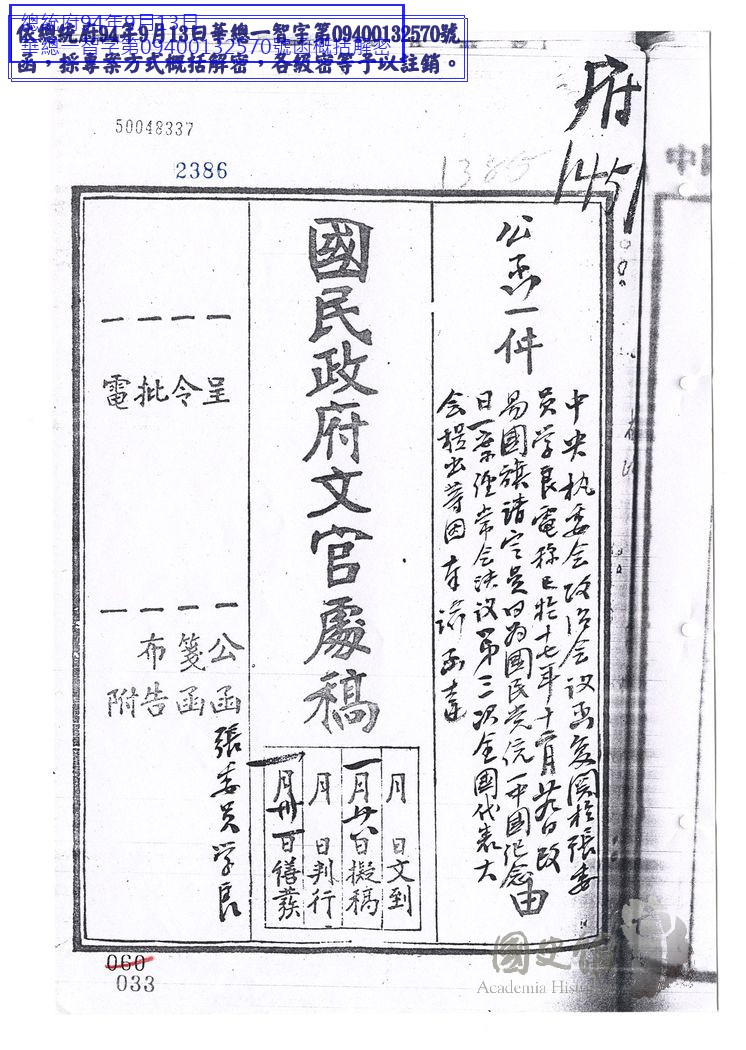 總統府94年9月13日
華總一智字第09400132570號函概括解密
依總統府94年9月13日華總一智字第09400132570號
函，採專案方式概括解密，各級密等予以註銷。
50048337
2386
1385
府
1451
公函一件
中央執委会政治会议函复関於張委
員学良電称已於十七年十二月廿九日改
易国旗請定是日为國民党统一中國纪念
日一案经常会决议第三次全國代表大
会提出等因奉諭函達
由
國民政府文官處稿
月 日文到
一月廿八日擬稿
月 日判行
一月卅一日繕發
呈
令
批
電
公函 張委員学良
箋函
布告
附
060
033
國史館
Academia Historica